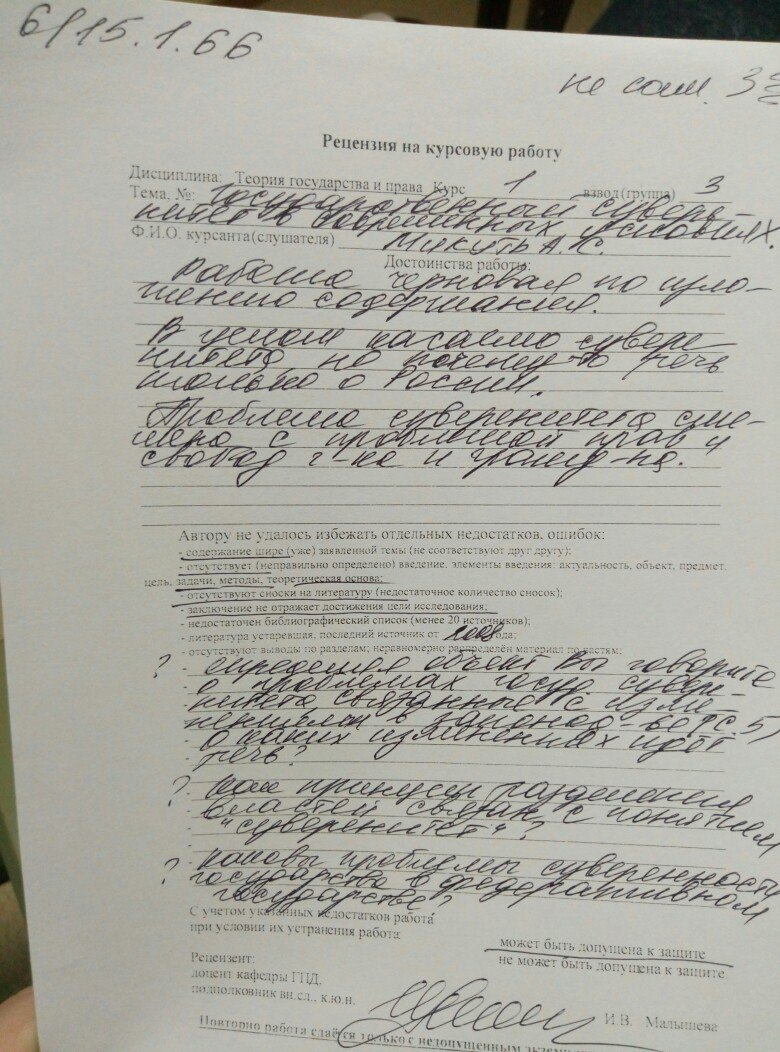 6/15.1.66
не сам. 3
Рецензия на курсовую работу
Дисциплина: Теория государства и права Курс 1 взвод (группа) 3
Тема, №: Государственный сувере-
нитет в современных условиях.
Ф.И.О. курсанта(слушателя) Микить А.С.
Достоинства работы:
Работа черновая по изло-
жению содержания.
В целом касаемо сувере-
нитета, но почему-то речь
только о России.
Проблема суверенитета сме-
шана с проблемой прав и
свобод ч-ка и гражд-на.
Автору не удалось избежать отдельных недостатков, ошибок:
- содержание шире (уже) заявленной темы (не соответствуют друг другу);
- отсутствует (неправильно определено) введение, элементы введения: актуальность, объект, предмет,
цель, задачи, методы, теоретическая основа;
- отсутствуют сноски на литературу (недостаточное количество сносок);
- заключение не отражает достижения цели исследования;
- недостаточен библиографический список (менее 20 источников);
- литература устаревшая, последний источник от 2008 года;
- отсутствуют выводы по разделам; неравномерно распределён материал по частям;
? - определяя объект Вы говорите
о проблемах госуд. сувере-
нитета связанные с изме-
нениями в законод-ве (С. 5)
О каких изменениях идёт
речь?
? как принцип разделения
властей связан с понятием
"суверенитет"?
? каковы проблемы суверенности
государства в федеративном
государстве?
С учетом указанных недостатков работа
при условии их устранения работа:
может быть допущена к защите
не может быть допущена к защите
Рецензент:
доцент кафедры ГПД,
подполковник вн.сл., к.ю.н.
И.В. Малышева
Повторно работа сдаётся только с недопущенным